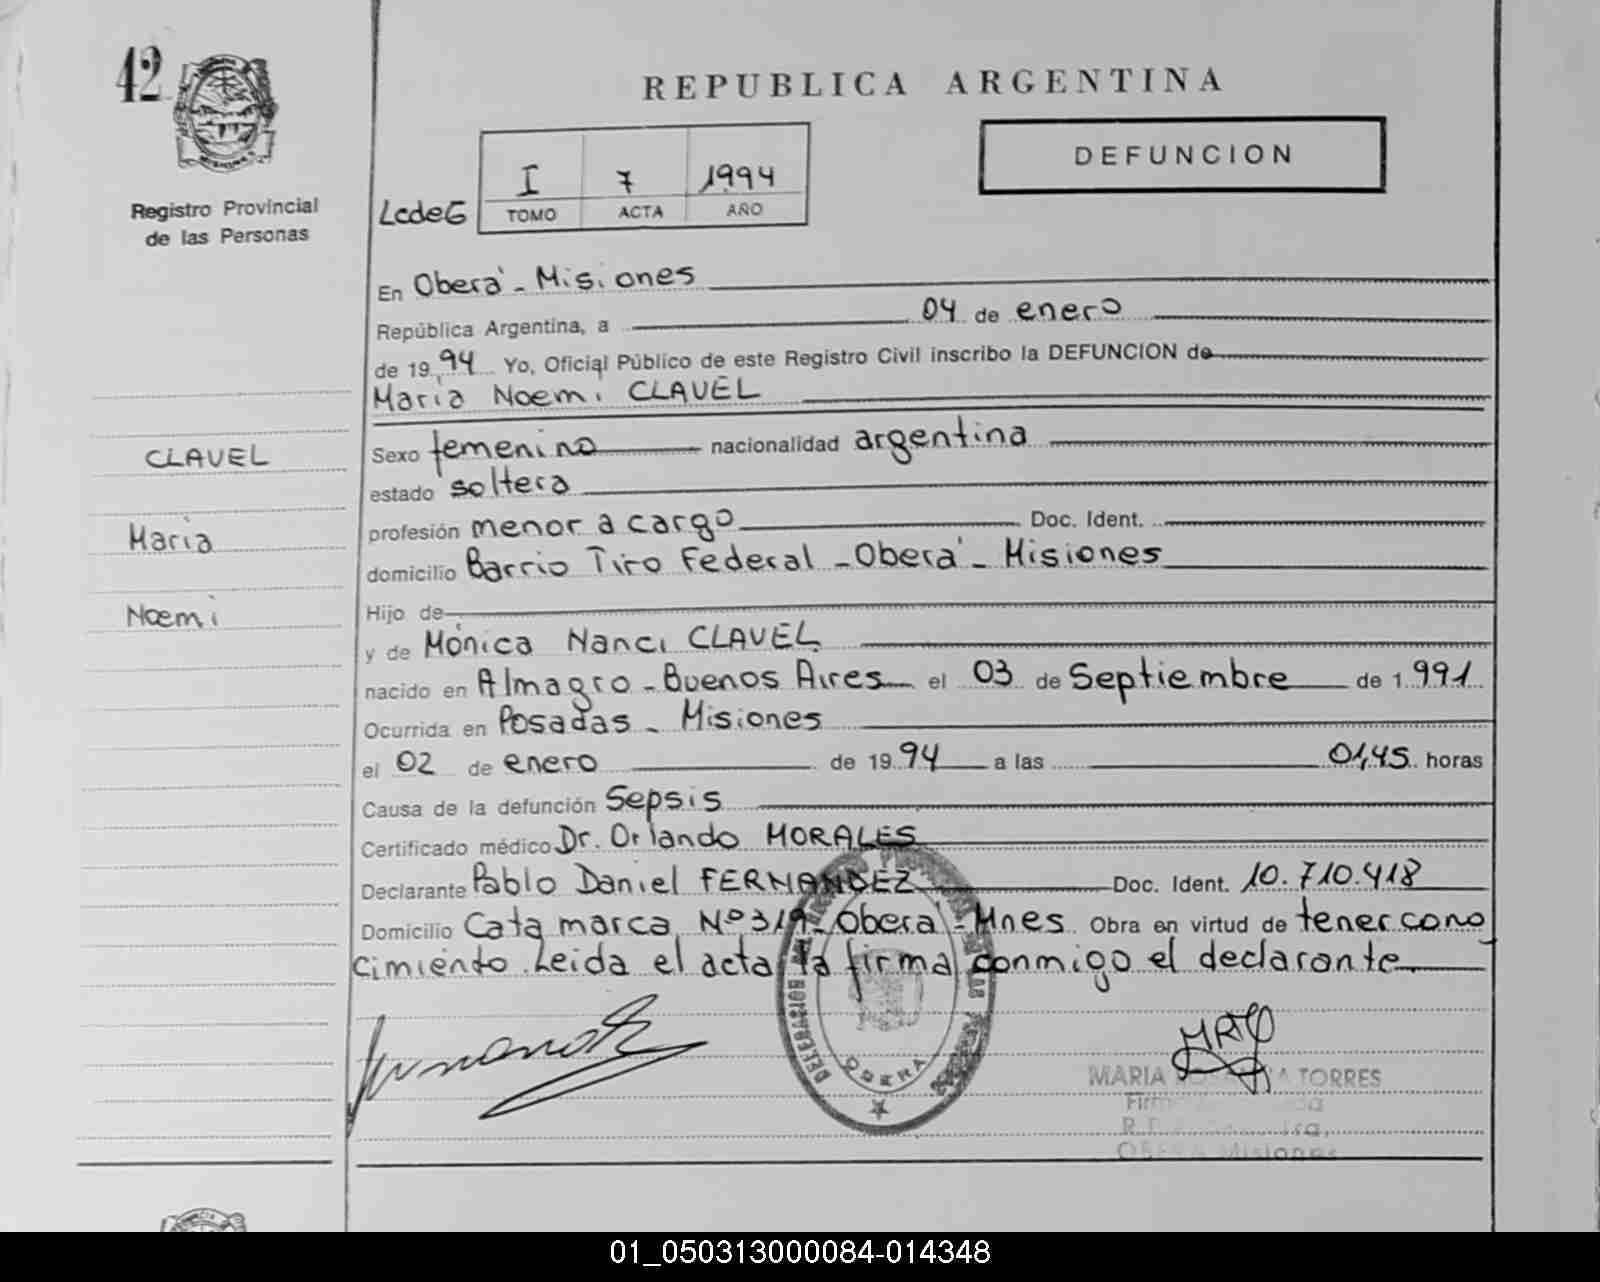 42
REPUBLICA ARGENTINA
DEFUNCION
Registro Provincial
de las Personas
LcdeG
I 7 1994
TOMO ACTA AÑO
En Oberá - Misiones
República Argentina, a 04 de enero
de 19 94 Yo, Oficial Público de este Registro Civil inscribo la DEFUNCION de
María Noemi CLAVEL
CLAVEL
María
Noemi
Sexo femenino nacionalidad argentina
estado soltera
profesión menor a cargo Doc. Ident.
domicilio Barrio Tiro Federal - Oberá - Misiones
Hijo de
y de Mónica Nanci CLAVEL
nacido en Almagro - Buenos Aires el 03 de Septiembre de 1.991
Ocurrida en Posadas - Misiones
el 02 de enero de 19 94 a las 01,45 horas
Causa de la defunción Sepsis
Certificado médico Dr. Orlando MORALES
Declarante Pablo Daniel FERNANDEZ Doc. Ident. 10.710.418
Domicilio Catamarca Nº 319 - Oberá - Mnes Obra en virtud de tener cono
cimiento. Leida el acta la firma conmigo el declarante
OBERA
MARIA TORRES
OBERA Misiones
01_050313000084-014348